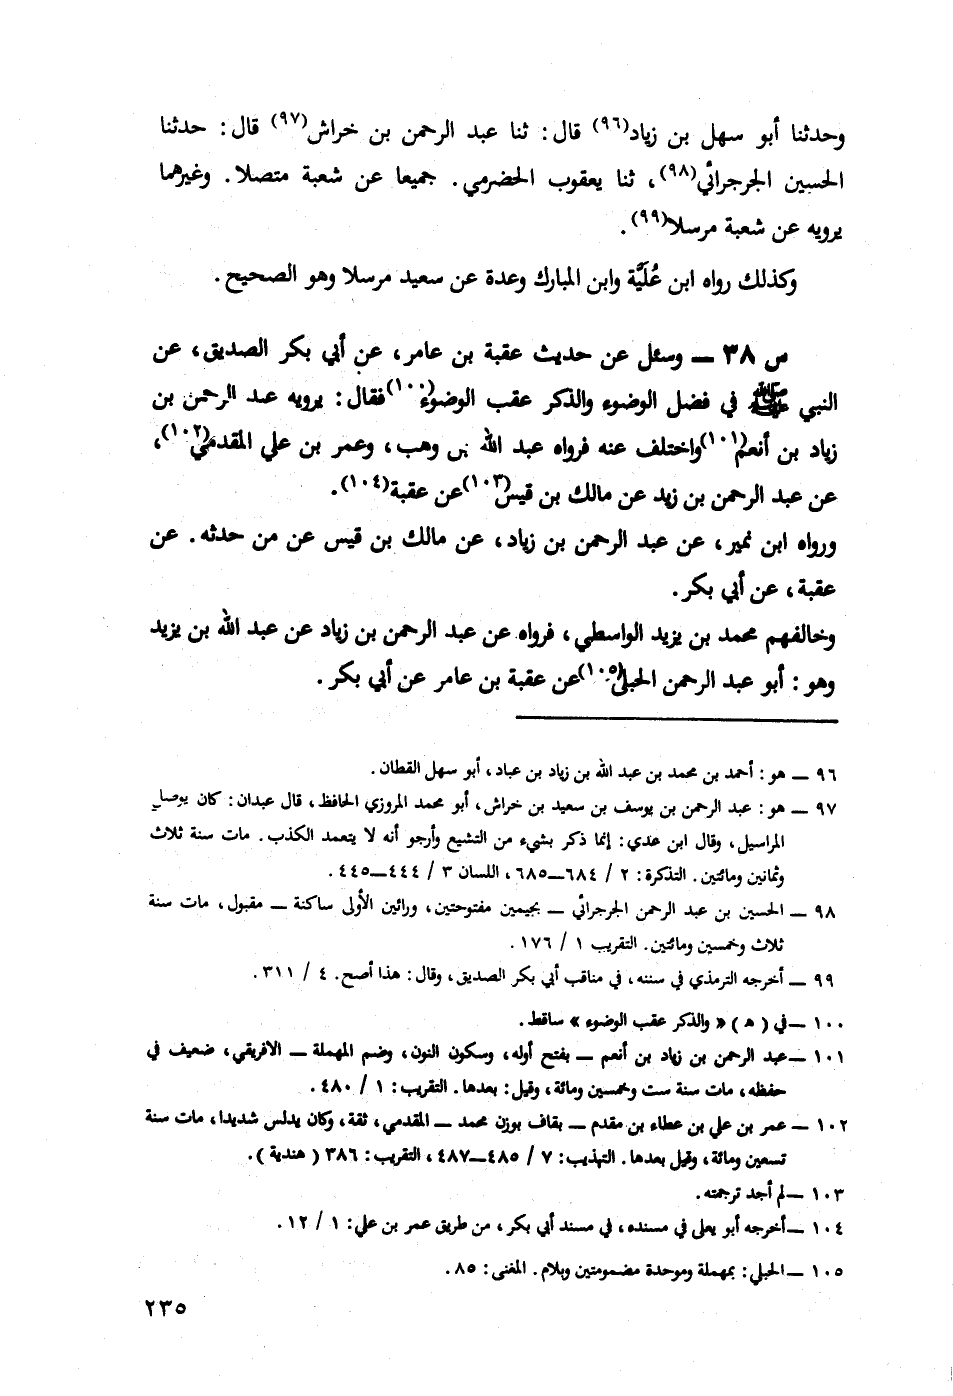 وحدثنا أبو سهل بن زياد(٩٦) قال: ثنا عبد الرحمن بن خراش(٩٧) قال: حدثنا
الحسين الجرجرائي(٩٨)، ثنا يعقوب الحضرمي. جميعا عن شعبة متصلا. وغيرهما
يرويه عن شعبة مرسلا(٩٩).
وكذلك رواه ابن عُلَيَّة وابن المبارك وعدة عن سعيد مرسلا وهو الصحيح.
س ٣٨ — وسئل عن حديث عقبة بن عامر، عن أبي بكر الصديق، عن
النبي ﷺ في فضل الوضوء والذكر عقب الوضوء(١٠٠) فقال: يرويه عبد الرحمن بن
زياد بن أنعم(١٠١) واختلف عنه فرواه عبد الله بن وهب، وعمر بن علي المقدمي(١٠٢)،
عن عبد الرحمن بن زيد عن مالك بن قيس(١٠٣) عن عقبة(١٠٤).
ورواه ابن نمير، عن عبد الرحمن بن زياد، عن مالك بن قيس عن من حدثه. عن
عقبة، عن أبي بكر.
وخالفهم محمد بن يزيد الواسطي، فرواه عن عبد الرحمن بن زياد عن عبد الله بن يزيد
وهو: أبو عبد الرحمن الحبلي(١٠٥) عن عقبة بن عامر عن أبي بكر.
٩٦ — هو: أحمد بن محمد بن عبد الله بن زياد بن عباد، أبو سهل القطان.
٩٧ — هو: عبد الرحمن بن يوسف بن سعيد بن خراش، أبو محمد المروزي الحافظ، قال عبدان: كان يوصل
المراسيل، وقال ابن عدي: إنما ذكر بشيء من التشيع وأرجو أنه لا يتعمد الكذب. مات سنة ثلاث
وثمانين ومائتين. التذكرة: ٢ / ٦٨٤—٦٨٥، اللسان ٣ / ٤٤٤—٤٤٥.
٩٨ — الحسين بن عبد الرحمن الجرجرائي — بجيمين مفتوحتين، ورائين الأولى ساكنة — مقبول، مات سنة
ثلاث وخمسين ومائتين. التقريب ١ / ١٧٦.
٩٩ — أخرجه الترمذي في سننه، في مناقب أبي بكر الصديق، وقال: هذا أصح. ٤ / ٣١١.
١٠٠ — في (هـ) «والذكر عقب الوضوء» ساقط.
١٠١ — عبد الرحمن بن زياد بن أنعم — بفتح أوله، وسكون النون، وضم المهملة — الافريقي، ضعيف في
حفظه، مات سنة ست وخمسين ومائة، وقيل: بعدها. التقريب: ١ / ٤٨٠.
١٠٢ — عمر بن علي بن عطاء بن مقدم — بقاف بوزن محمد — المقدمي، ثقة، وكان يدلس شديدا، مات سنة
تسعين ومائة، وقيل بعدها. التهذيب: ٧ / ٤٨٥—٤٨٧، التقريب: ٣٨٦ (هندية).
١٠٣ — لم أجد ترجمته.
١٠٤ — أخرجه أبو يعلى في مسنده، في مسند أبي بكر، من طريق عمر بن علي: ١ / ١٢.
١٠٥ — الحبلي: بمهملة وموحدة مضمومتين وبلام. المغنى: ٨٥.
٢٣٥